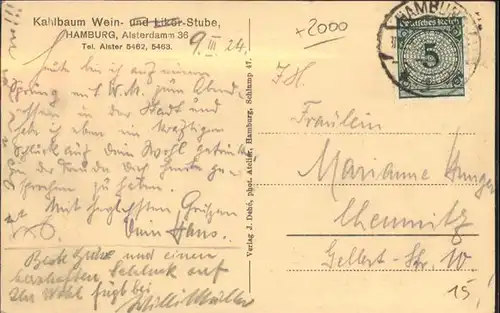 Kahlbaum Wein- und Likör-Stube,
HAMBURG, Alsterdamm 36
Tel. Alster 5462, 5463.
9. III 24.
+2000
HAMBURG
Deutsches Reich
5
Heute bin ich auf einen
Sprung mit W. M. zum Abend
in der Stadt und
hab ich eben einen kräftigen
Schluck auf Dein Wohl getrunken
zu der Freude Dich heute
sprechen zu haben.
Mit herzlichsten Grüßen
Dein Hans.
Beste Grüße und einen
herzhaften Schluck auf
Ihr Wohl fügt bei
Willi Müller
Verlag J. Dehé, phot. Atelier, Hamburg, Schlump 47.
Fräulein
Marianne
Chemnitz
Gellert-Str. 10
15,